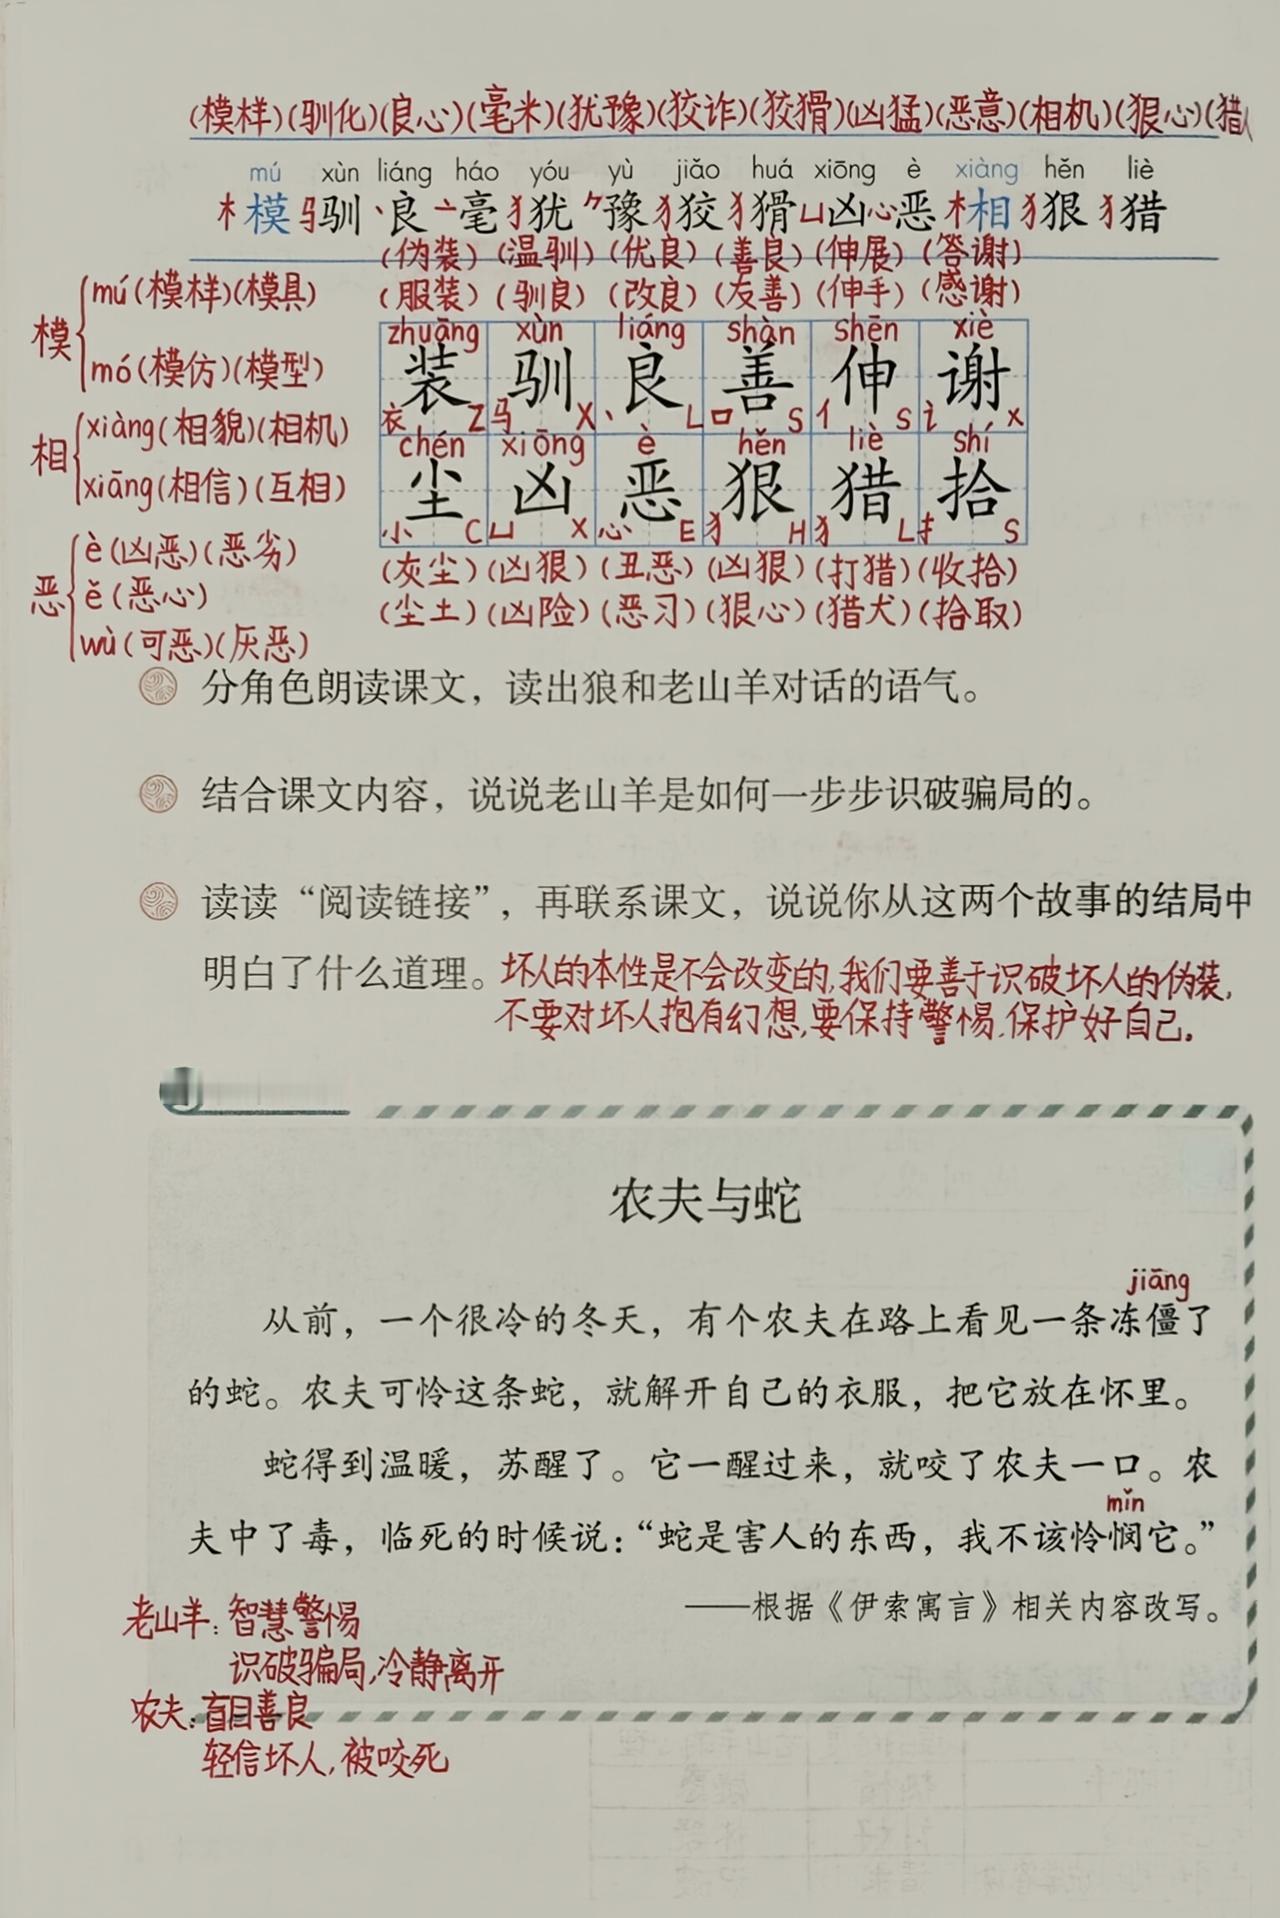 (模样)(驯化)(良心)(毫米)(犹豫)(狡诈)(狡猾)(凶猛)(恶意)(相机)(狠心)(猎
mú xùn liáng háo yóu yù jiǎo huá xiōng è xiàng hěn liè
木模 马驯 丶良 亠毫 犭犹 ⺈豫 犭狡 犭猾 凵凶 心恶 木相 犭狠 犭猎
(伪装)(温驯)(优良)(善良)(伸展)(答谢)
(服装)(驯良)(改良)(友善)(伸手)(感谢)
模 mú(模样)(模具)
mó(模仿)(模型)
相 xiàng(相貌)(相机)
xiāng(相信)(互相)
恶 è(凶恶)(恶劣)
ě(恶心)
wù(可恶)(厌恶)
zhuāng xùn liáng shàn shēn xiè
装 驯 良 善 伸 谢
衣 Z 马 X 丶 L 口 S 亻 S 讠 X
chén xiōng è hěn liè shí
尘 凶 恶 狠 猎 拾
小 C 凵 X 心 E 犭 H 犭 L 扌 S
(灰尘)(凶狠)(丑恶)(凶狠)(打猎)(收拾)
(尘土)(凶险)(恶习)(狠心)(猎犬)(拾取)
分角色朗读课文，读出狼和老山羊对话的语气。
结合课文内容，说说老山羊是如何一步步识破骗局的。
读读“阅读链接”，再联系课文，说说你从这两个故事的结局中
明白了什么道理。坏人的本性是不会改变的,我们要善于识破坏人的伪装,
不要对坏人抱有幻想,要保持警惕,保护好自己.
农夫与蛇
jiāng
从前，一个很冷的冬天，有个农夫在路上看见一条冻僵了
的蛇。农夫可怜这条蛇，就解开自己的衣服，把它放在怀里。
蛇得到温暖，苏醒了。它一醒过来，就咬了农夫一口。农
mǐn
夫中了毒，临死的时候说：“蛇是害人的东西，我不该怜悯它。”
——根据《伊索寓言》相关内容改写。
老山羊:智慧警惕
识破骗局,冷静离开
农夫:盲目善良
轻信坏人,被咬死